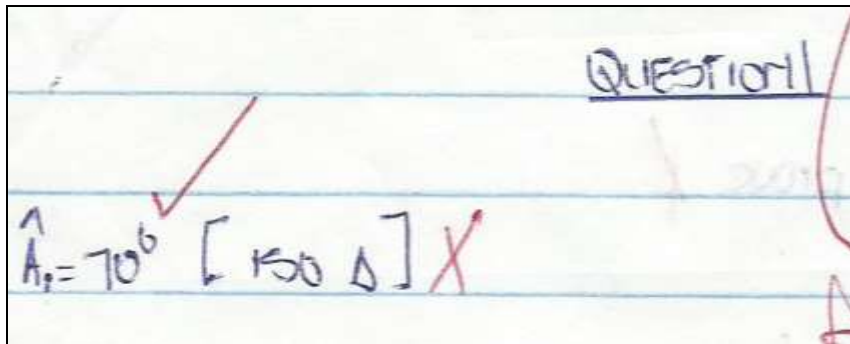 QUESTION 1
Â₁ = 70° [ ISO Δ ]